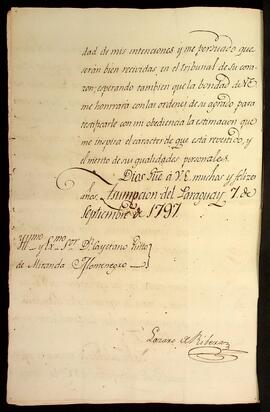 dad de mis intenciones y me persuado que
serán bien recividas en el tribunal de su cora-
zon; esperando tambien que la bondad de V.E.
me honrará con las ordenes de su agrado para
testificarle con mi obediencia la estimacion que
me inspira el caracter de que está revestido, y
el merito de sus qualidades personales.
Dios gũe á V.E. muchos y felizes
años. Assumpcion del Paraguay 7. de
Septiembre de 1797.
Yllmo y Exmo Sor Dn Cayetano Pinto
de Miranda Montenegro
Lazaro de Ribera